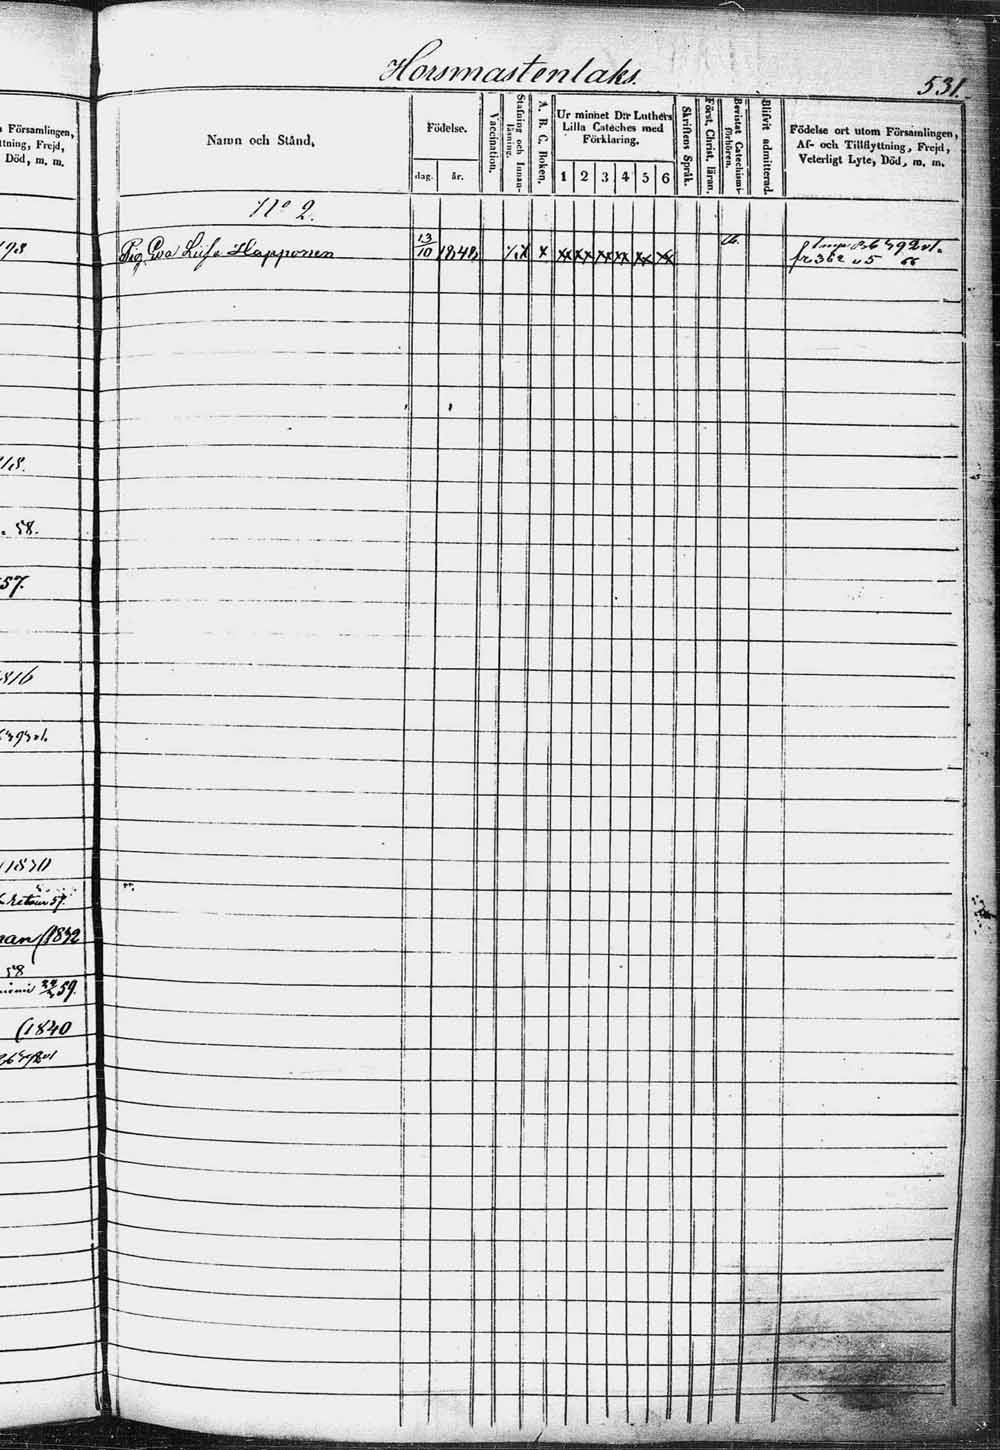 Horsmastenlaks.
531.
Församlingen,
ttning, Frejd,
Död, m. m.
Namn och Stånd,
Födelse.
dag.
år.
Vaccination.
Stafning och Innan-
läsning.
A. B. C. Boken.
Ur minnet D:r Luthers
Lilla Cateches med
Förklaring.
1 2 3 4 5 6
Skriftens Språk.
Först. Christ. läran.
Bevistat Catechismi-
förhören.
Blifvit admitterad.
Födelse ort utom Församlingen,
Af- och Tillflyttning, Frejd,
Veterligt Lyte, Död, m. m.
No 2.
Pig. Eva Lisa Happonen
13/10 1848
fr 362 v 5 66
58.
57.
816
1830
retour 57.
1832
58
59.
1840